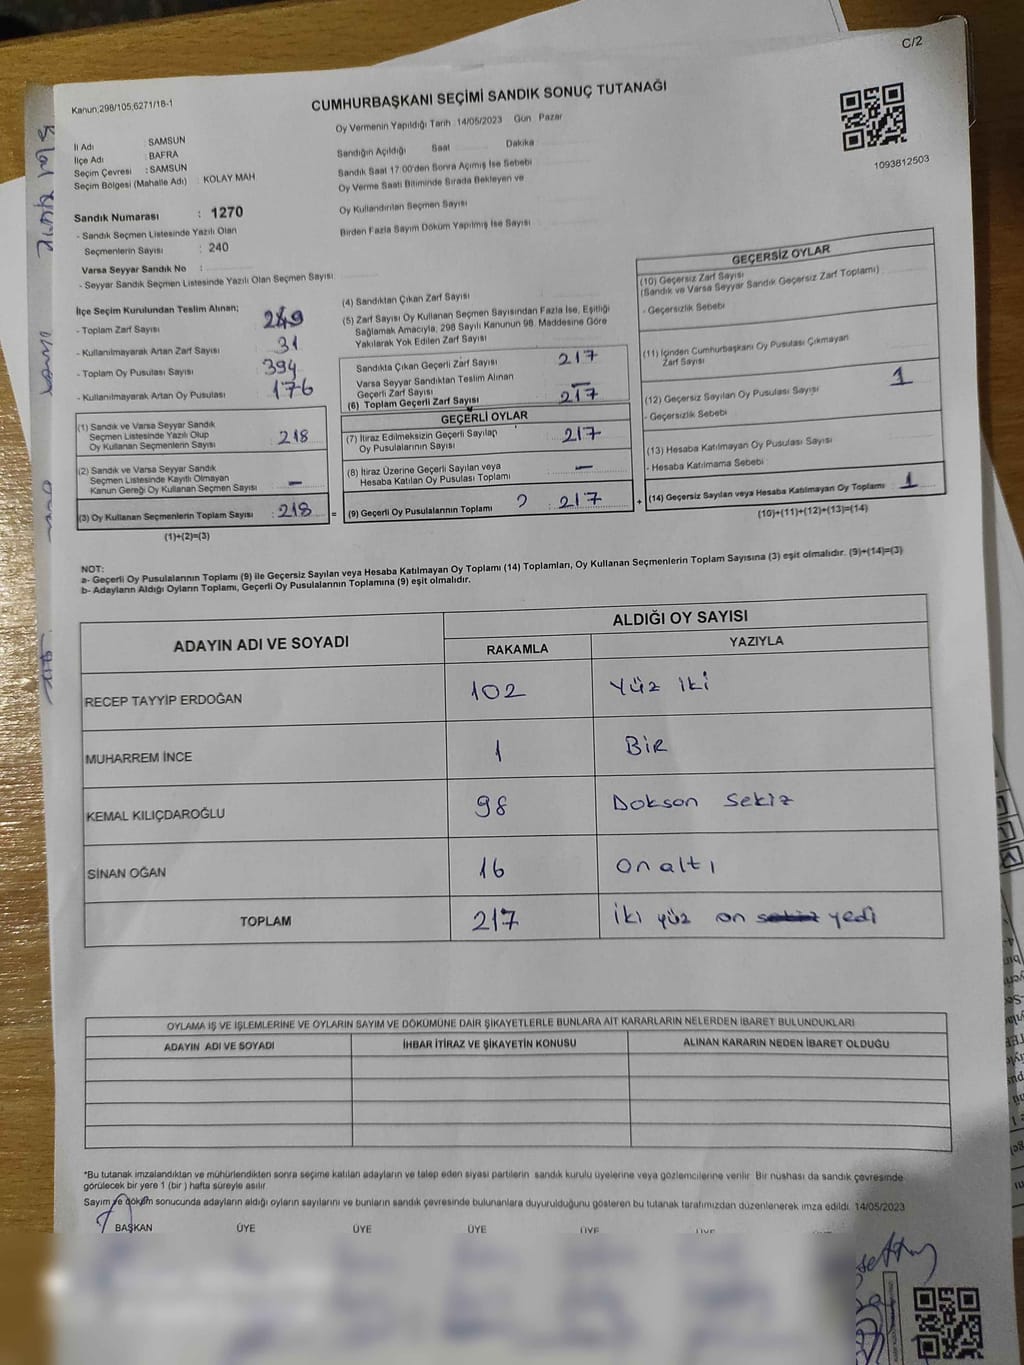 C/2
Kanun;298/105;6271/18-1
CUMHURBAŞKANI SEÇİMİ SANDIK SONUÇ TUTANAĞI
İl Adı : SAMSUN
İlçe Adı : BAFRA
Seçim Çevresi : SAMSUN
Seçim Bölgesi (Mahalle Adı) : KOLAY MAH
Sandık Numarası : 1270
- Sandık Seçmen Listesinde Yazılı Olan
Seçmenlerin Sayısı : 240
Varsa Seyyar Sandık No :
- Seyyar Sandık Seçmen Listesinde Yazılı Olan Seçmen Sayısı:
Oy Vermenin Yapıldığı Tarih :14/05/2023 Gün Pazar
Sandığın Açıldığı Saat Dakika
Sandık Saat 17:00'den Sonra Açılmış İse Sebebi
Oy Verme Saati Bitiminde Sırada Bekleyen ve
Oy Kullandırılan Seçmen Sayısı
Birden Fazla Sayım Döküm Yapılmış İse Sayısı
1093812503
İlçe Seçim Kurulundan Teslim Alınan;
- Toplam Zarf Sayısı 249
- Kullanılmayarak Artan Zarf Sayısı 31
- Toplam Oy Pusulası Sayısı 394
- Kullanılmayarak Artan Oy Pusulası 176
(1) Sandık ve Varsa Seyyar Sandık
Seçmen Listesinde Yazılı Olup
Oy Kullanan Seçmenlerin Sayısı : 218
(2) Sandık ve Varsa Seyyar Sandık
Seçmen Listesinde Kayıtlı Olmayan
Kanun Gereği Oy Kullanan Seçmen Sayısı : –
(3) Oy Kullanan Seçmenlerin Toplam Sayısı : 218 =
(1)+(2)=(3)
(4) Sandıktan Çıkan Zarf Sayısı
(5) Zarf Sayısı Oy Kullanan Seçmen Sayısından Fazla İse, Eşitliği
Sağlamak Amacıyla, 298 Sayılı Kanunun 98. Maddesine Göre
Yakılarak Yok Edilen Zarf Sayısı
Sandıkta Çıkan Geçerli Zarf Sayısı 217
Varsa Seyyar Sandıktan Teslim Alınan
Geçerli Zarf Sayısı –
(6) Toplam Geçerli Zarf Sayısı 217
GEÇERLİ OYLAR
(7) İtiraz Edilmeksizin Geçerli Sayılan
Oy Pusulalarının Sayısı : 217
(8) İtiraz Üzerine Geçerli Sayılan veya
Hesaba Katılan Oy Pusulası Toplamı : –
(9) Geçerli Oy Pusulalarının Toplamı : 217 +
GEÇERSİZ OYLAR
(10) Geçersiz Zarf Sayısı
(Sandık ve Varsa Seyyar Sandık Geçersiz Zarf Toplamı)
- Geçersizlik Sebebi
(11) İçinden Cumhurbaşkanı Oy Pusulası Çıkmayan
Zarf Sayısı
(12) Geçersiz Sayılan Oy Pusulası Sayısı 1
- Geçersizlik Sebebi
(13) Hesaba Katılmayan Oy Pusulası Sayısı
- Hesaba Katılmama Sebebi
(14) Geçersiz Sayılan veya Hesaba Katılmayan Oy Toplamı : 1
(10)+(11)+(12)+(13)=(14)
NOT:
a- Geçerli Oy Pusulalarının Toplamı (9) ile Geçersiz Sayılan veya Hesaba Katılmayan Oy Toplamı (14) Toplamları, Oy Kullanan Seçmenlerin Toplam Sayısına (3) eşit olmalıdır. (9)+(14)=(3)
b- Adayların Aldığı Oyların Toplamı, Geçerli Oy Pusulalarının Toplamına (9) eşit olmalıdır.
ADAYIN ADI VE SOYADI ALDIĞI OY SAYISI
RAKAMLA YAZIYLA
RECEP TAYYİP ERDOĞAN 102 Yüz iki
MUHARREM İNCE 1 Bir
KEMAL KILIÇDAROĞLU 98 Dokson Sekiz
SİNAN OĞAN 16 On altı
TOPLAM 217 İki yüz on yedi
OYLAMA İŞ VE İŞLEMLERİNE VE OYLARIN SAYIM VE DÖKÜMÜNE DAİR ŞİKAYETLERLE BUNLARA AİT KARARLARIN NELERDEN İBARET BULUNDUKLARI
ADAYIN ADI VE SOYADI İHBAR İTİRAZ VE ŞİKAYETİN KONUSU ALINAN KARARIN NEDEN İBARET OLDUĞU
*Bu tutanak imzalandıktan ve mühürlendikten sonra seçime katılan adayların ve talep eden siyasi partilerin sandık kurulu üyelerine veya gözlemcilerine verilir. Bir nüshası da sandık çevresinde
görülecek bir yere 1 (bir ) hafta süreyle asılır
Sayım ve döküm sonucunda adayların aldığı oyların sayılarını ve bunların sandık çevresinde bulunanlara duyurulduğunu gösteren bu tutanak tarafımızdan düzenlenerek imza edildi. 14/05/2023
BAŞKAN ÜYE ÜYE ÜYE ÜYE ÜYE